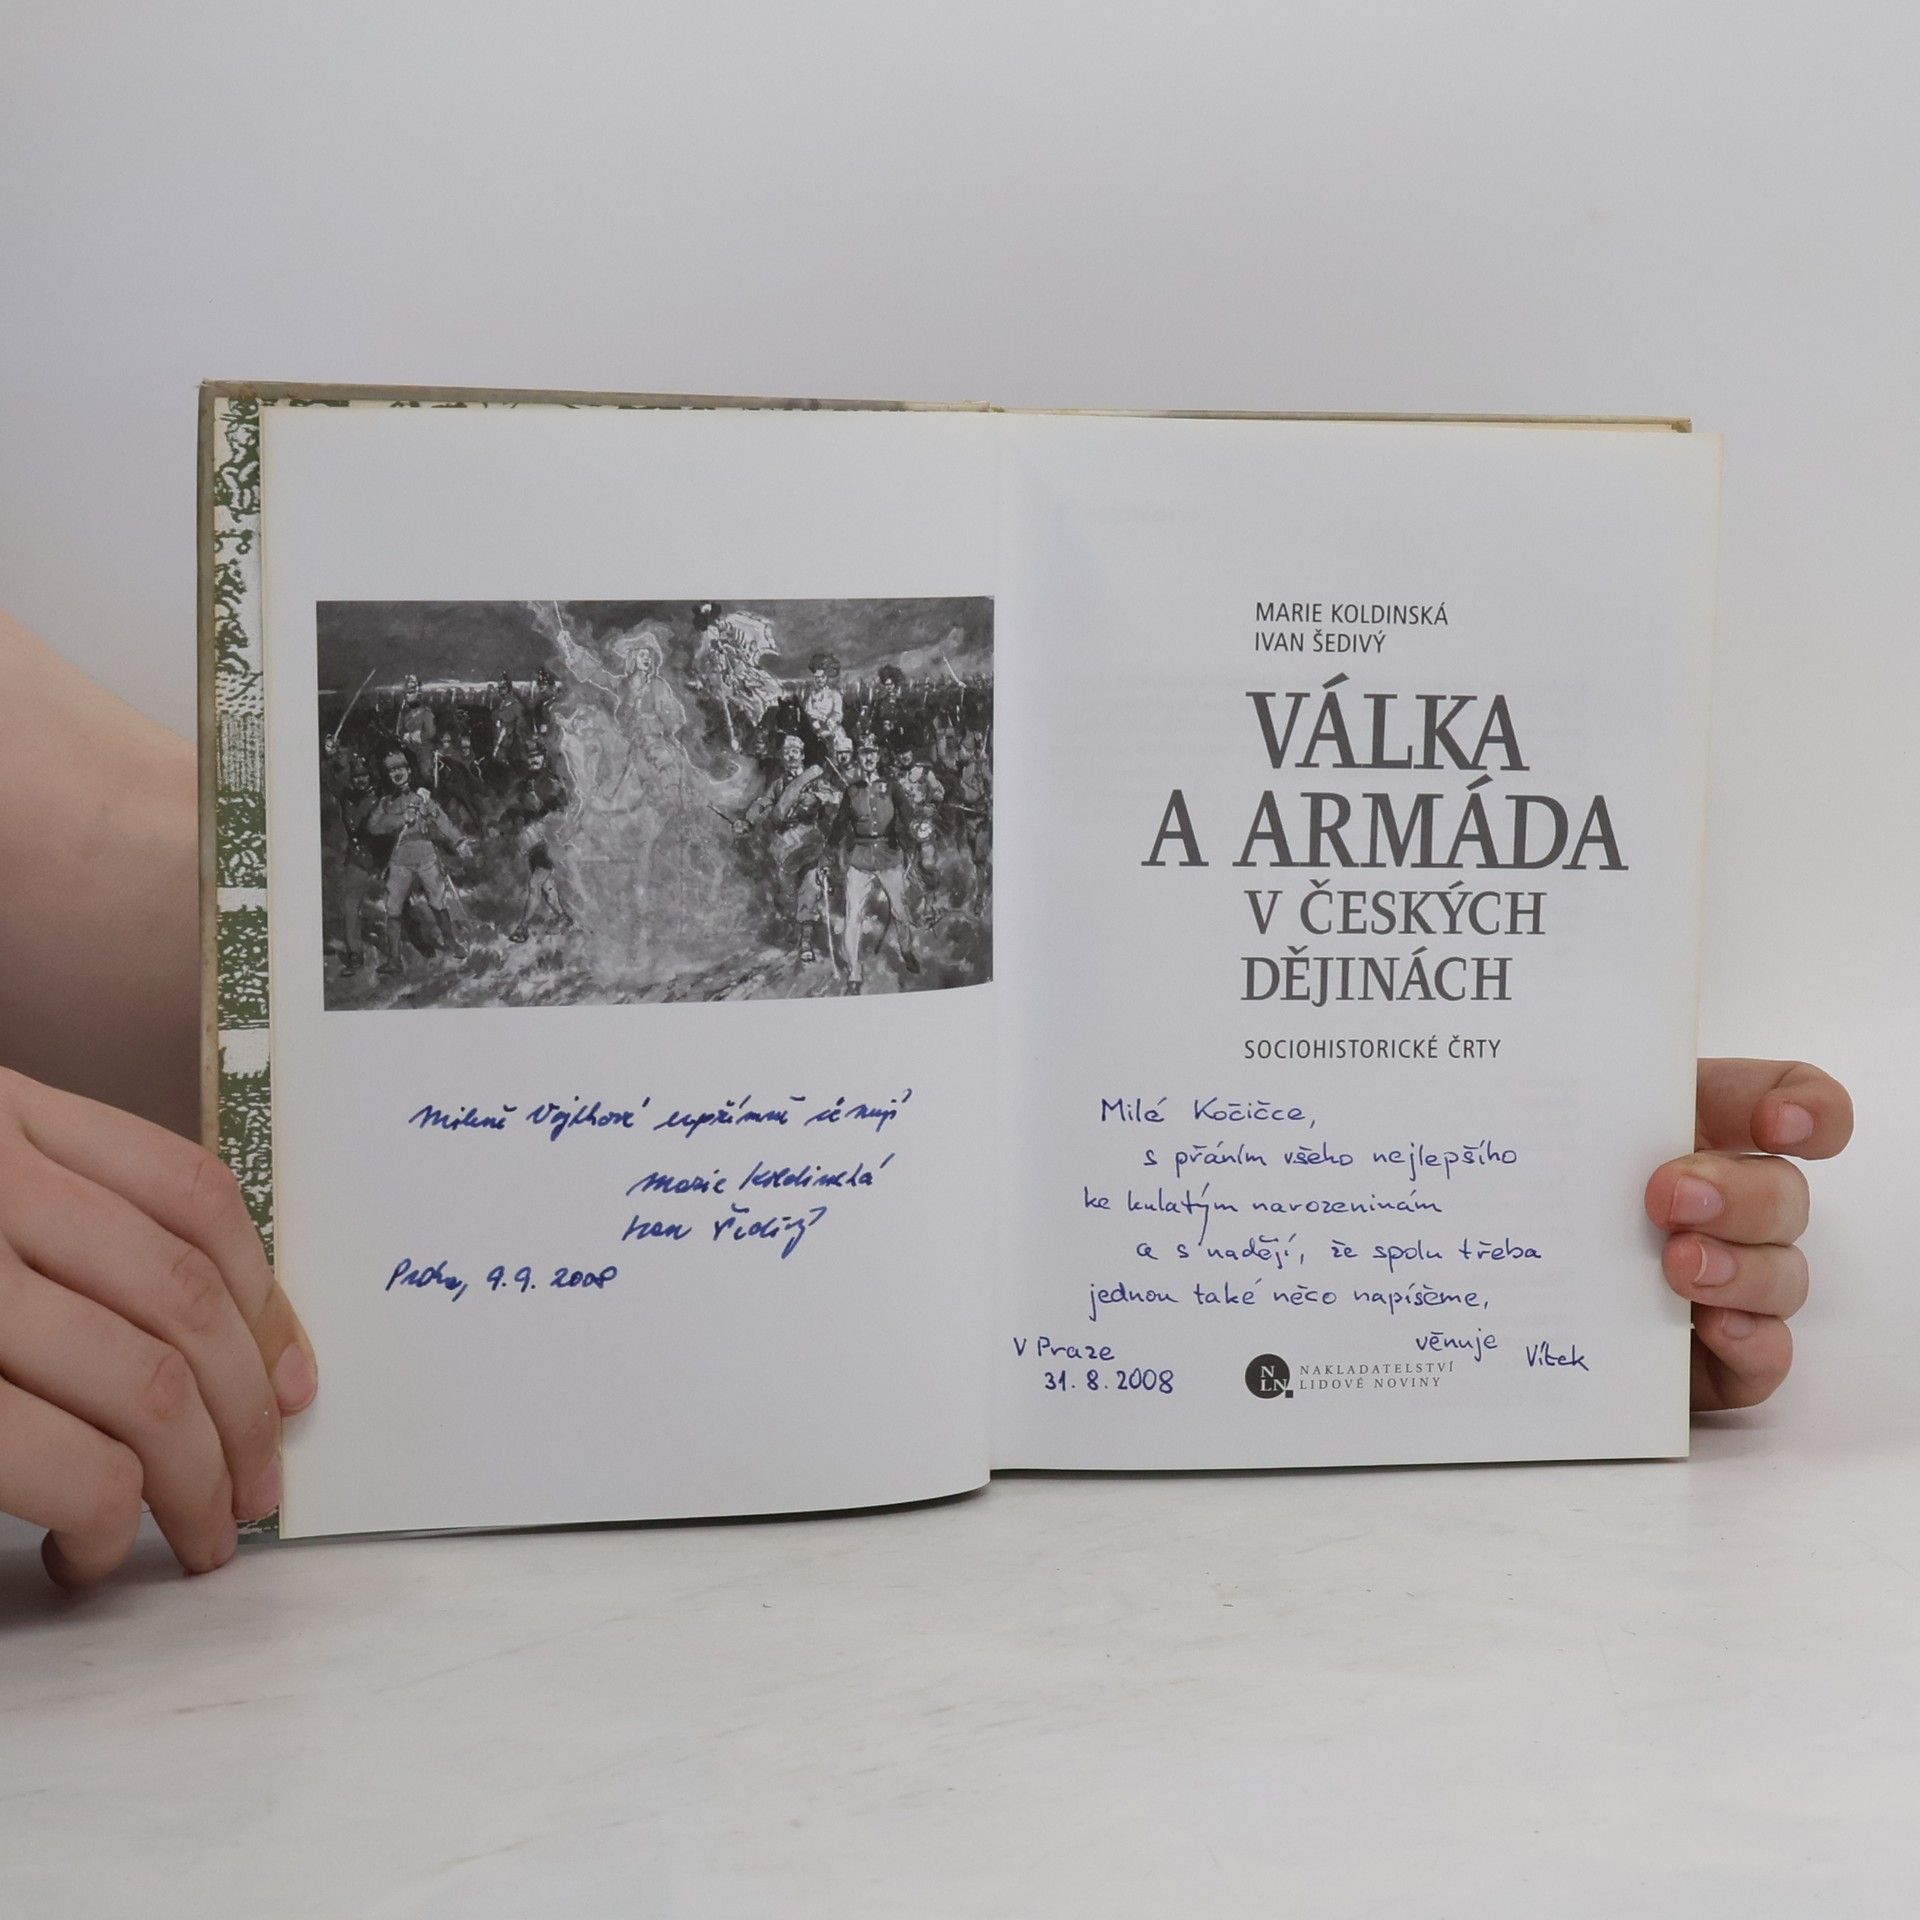 Mileně Vojtkové upřímně věnují
Marie Koldinská
Ivan Šedivý
Praha, 9. 9. 2008
MARIE KOLDINSKÁ
IVAN ŠEDIVÝ
VÁLKA
A ARMÁDA
V ČESKÝCH
DĚJINÁCH
SOCIOHISTORICKÉ ČRTY
Milé Kočičce,
s přáním všeho nejlepšího
ke kulatým narozeninám
a s nadějí, že spolu třeba
jednou také něco napíšeme,
věnuje Vítek
V Praze
31. 8. 2008
N
LN
NAKLADATELSTVÍ
LIDOVÉ NOVINY